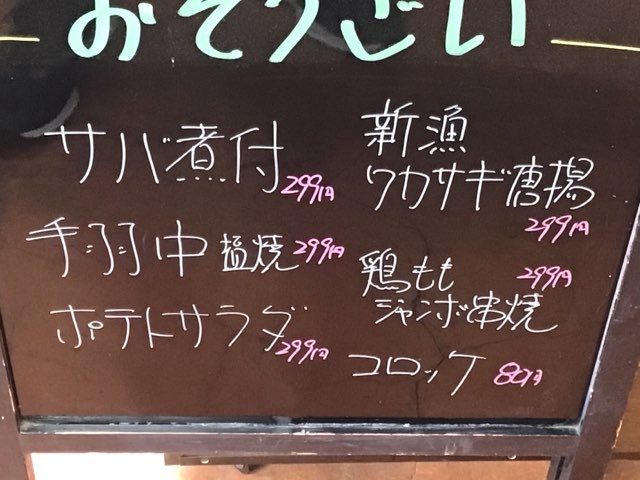 おそうざい
サバ煮付 299円
手羽中 塩焼 299円
ポテトサラダ 299円
新漁
ワカサギ唐揚
299円
鶏もも 299円
ジャンボ串焼
コロッケ 80円